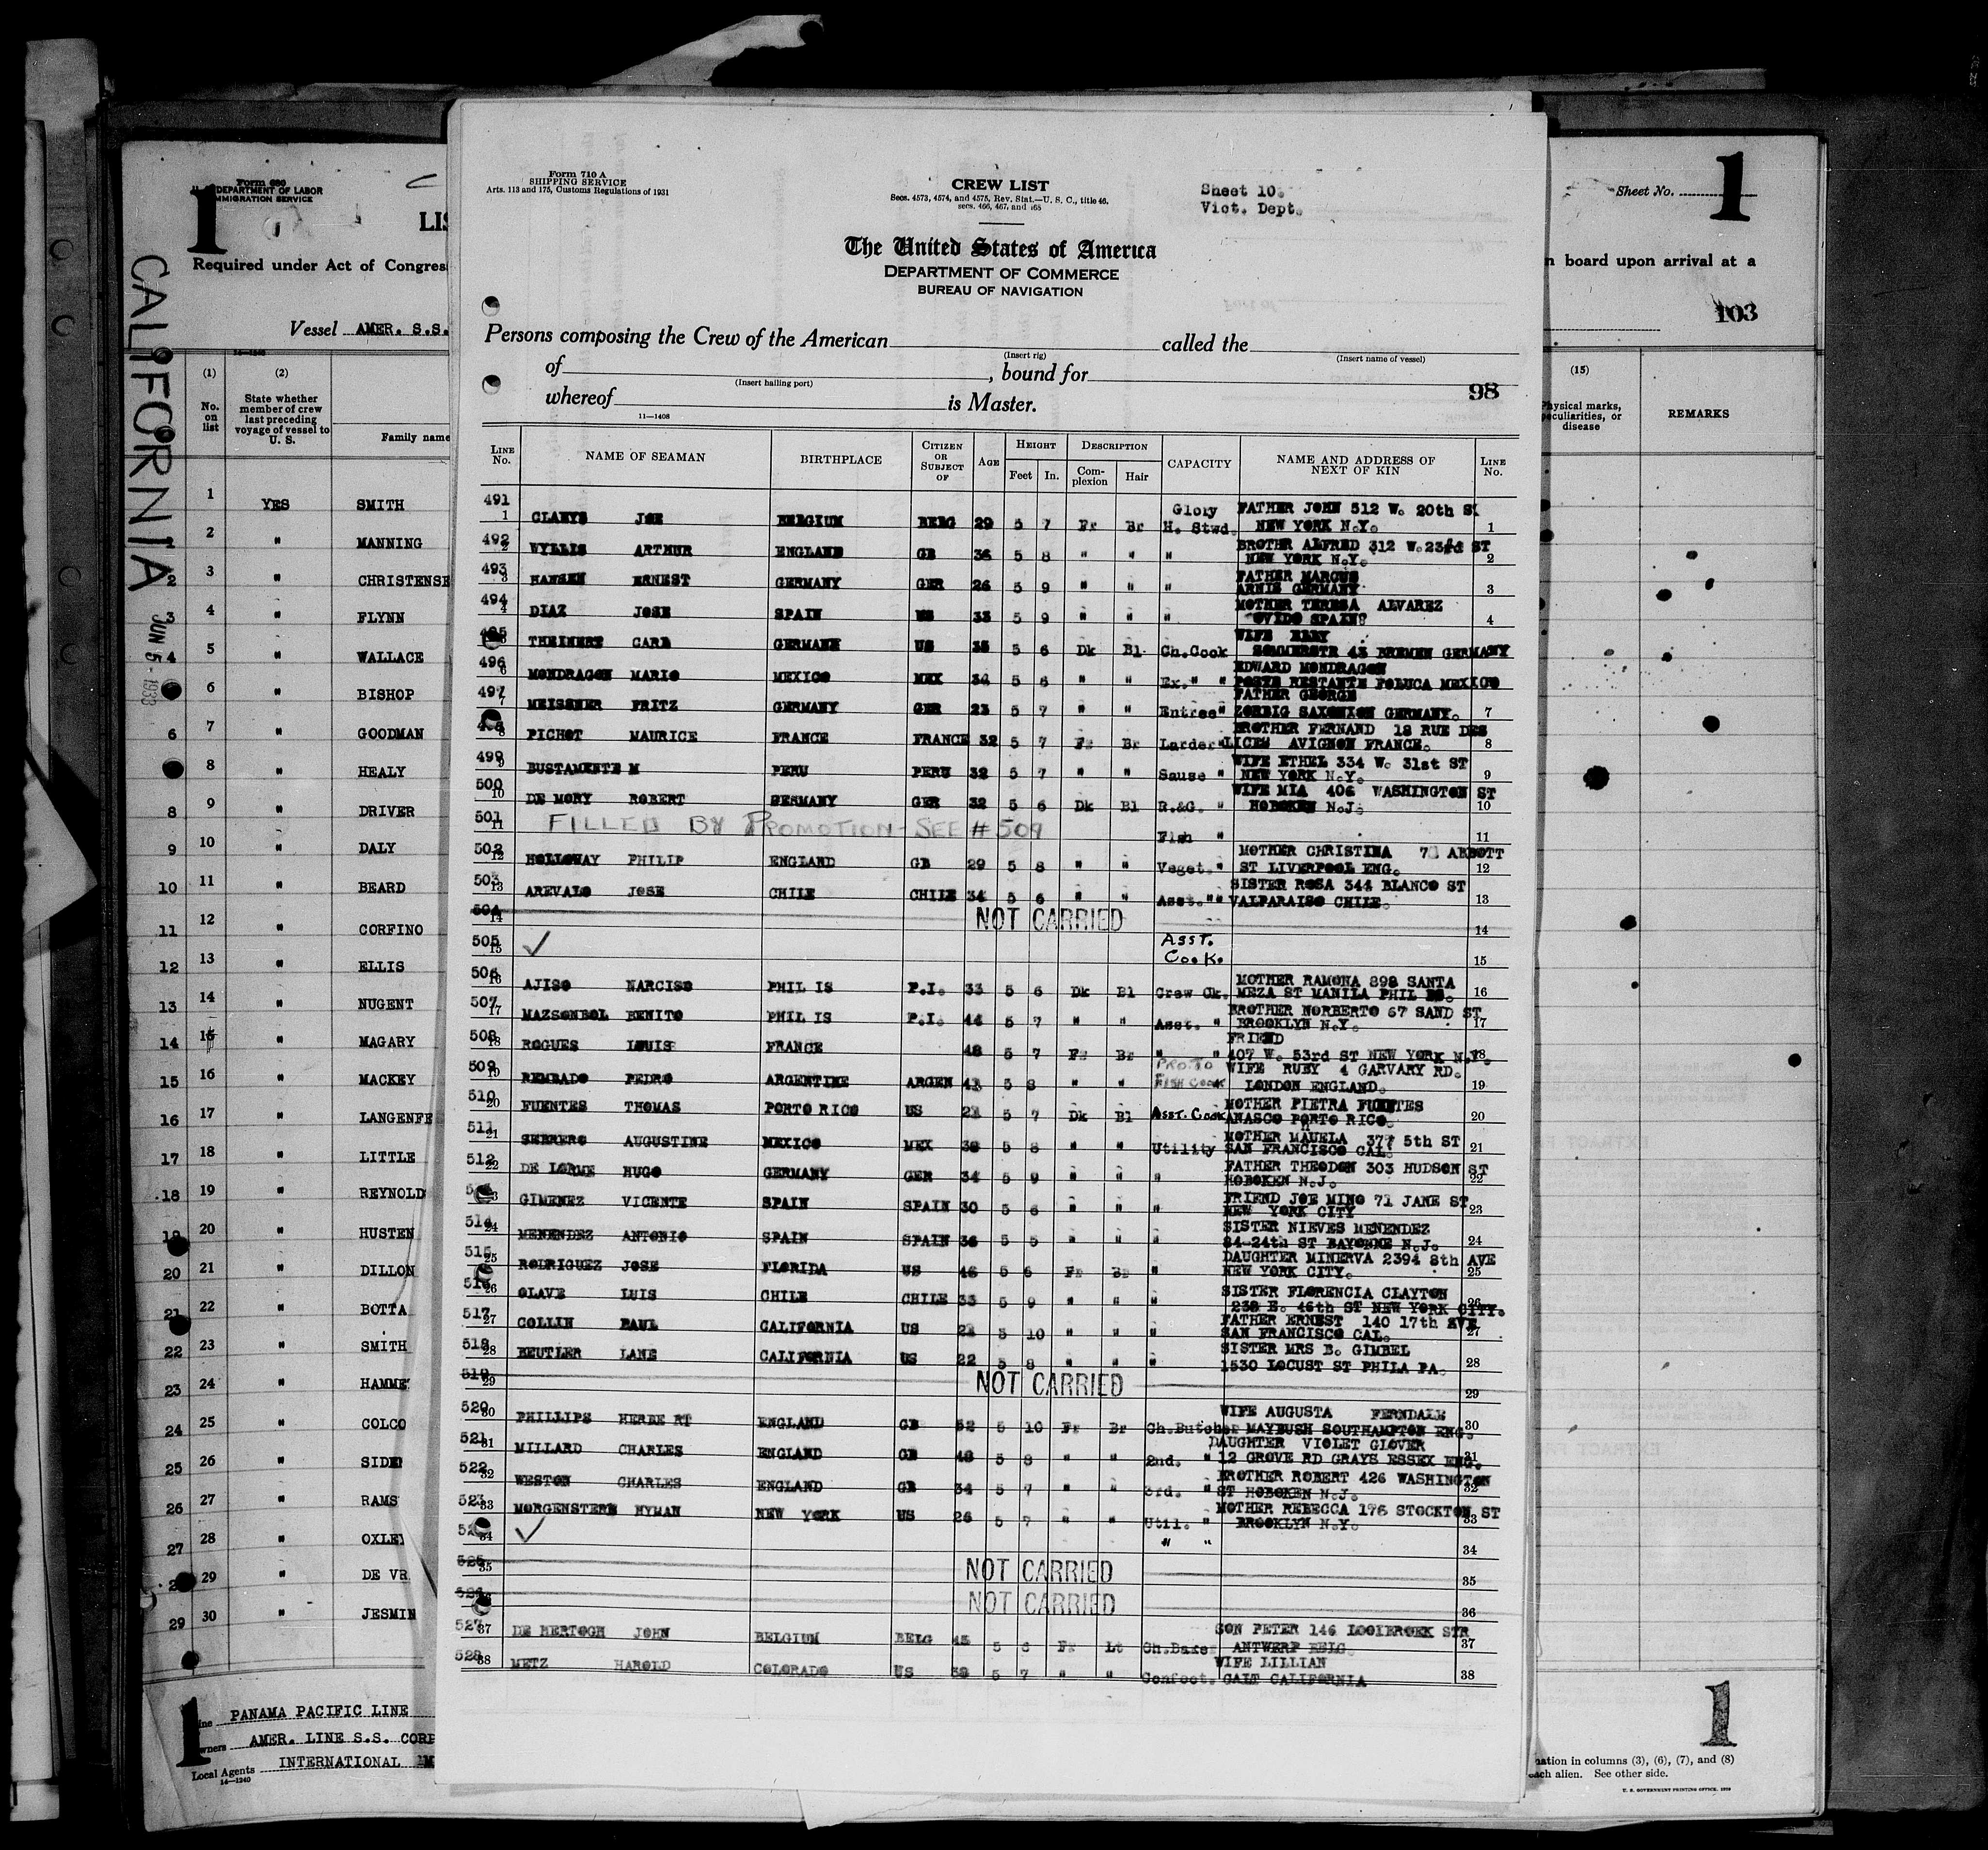 Form 680
U. S. DEPARTMENT OF LABOR
IMMIGRATION SERVICE
1
LIS
Required under Act of Congres
Vessel AMER. S.S.
CALIFORNIA
JUN 5 - 1933
(1) (2)
No. on list
State whether member of crew last preceding voyage of vessel to U. S.
Family name
1 YES SMITH
2 " MANNING
2 3 " CHRISTENSE
3 4 " FLYNN
4 5 " WALLACE
6 " BISHOP
6 7 " GOODMAN
8 " HEALY
8 9 " DRIVER
9 10 " DALY
10 11 " BEARD
11 12 " CORFINO
12 13 " ELLIS
13 14 " NUGENT
14 15 " MAGARY
15 16 " MACKEY
16 17 " LANGENFE
17 18 " LITTLE
18 19 " REYNOLD
19 20 " HUSTEN
20 21 " DILLON
21 22 " BOTTA
22 23 " SMITH
23 24 " HAMME
24 25 " COLCO
25 26 " SIDE
26 27 " RAMS
27 28 " OXLEY
29 " DE VR
29 30 " JESMIN
1
Line PANAMA PACIFIC LINE
Owners AMER. LINE S.S. CORP
Local Agents INTERNATIONAL M
14—1240
Form 710 A
SHIPPING SERVICE
Arts. 113 and 175, Customs Regulations of 1931
CREW LIST
Secs. 4573, 4574, and 4575, Rev. Stat.—U. S. C., title 46,
secs. 466, 467, and 468
Sheet 10.
Vict. Dept.
The United States of America
DEPARTMENT OF COMMERCE
BUREAU OF NAVIGATION
Persons composing the Crew of the American called the
(Insert rig) (Insert name of vessel)
of , bound for
(Insert hailing port)
98
whereof is Master.
11—1408
LINE No. NAME OF SEAMAN BIRTHPLACE CITIZEN OR SUBJECT OF AGE HEIGHT Feet In. DESCRIPTION Complexion Hair CAPACITY NAME AND ADDRESS OF NEXT OF KIN LINE No.
491 Glory FATHER JOHN 512 W. 20th St
1 CLAEYS JOE BELGIUM BELG 29 5 7 Fr Br H. Stwd. NEW YORK N.Y. 1
492 BROTHR ALFRED 312 W. 23rd ST
2 WYLLIS ARTHUR ENGLAND GB 36 5 8 " " " NEW YORK N.Y. 2
493 FATHER MARCUS
3 HANSEN ERNEST GERMANY GER 26 5 9 " " " ARNIS GERMANY 3
494 MOTHER TERESA ALVAREZ
4 DIAZ JOSE SPAIN US 33 5 9 " " " OVIDO SPAIN 4
495 WIFE ELLY
THEINERT CARL GERMANY US 35 5 6 Dk Bl Ch.Cook SOMMERSTR 43 BREMEN GERMANY
496 EDWARD MONDRAGON
6 MONDRAGON MARIO MEXICO MEX 34 5 6 " " Ex. " POSTE RESTANTE TOLUCA MEXICO
497 FATHER GEORGE
7 MEISSNER FRITZ GERMANY GER 23 5 7 " " Entree " ZORBIG SAXONION GERMANY. 7
498 BROTHER FERNAND 18 RUE DES
8 PICHOT MAURICE FRANCE FRANCE 32 5 7 Fr Br Larder " LICES AVIGNON FRANCE. 8
499 WIFE ETHEL 334 W. 31st ST
9 BUSTAMENTE M PERU PERU 32 5 7 " " Sause " NEW YORK N.Y. 9
500 WIFE MIA 406 WASHINGTON ST
10 DE MORY ROBERT GERMANY GER 32 5 6 Dk Bl R.&G. " HOBOKEN N.J. 10
501 FILLED BY PROMOTION - SEE # 509
11 Fish " 11
502 MOTHER CHRISTINA 71 ABBOTT
12 HOLLOWAY PHILIP ENGLAND GB 29 5 8 " " Veget. " ST LIVERPOOL ENG. 12
503 SISTER ROSA 344 BLANCO ST
13 AREVALO JOSE CHILE CHILE 34 5 6 " " Asst. "" VALPARAISO CHILE. 13
504 14 NOT CARRIED 14
505 15 ✓ ASST. COOK. 15
506 MOTHER RAMONA 898 SANTA
16 AJISO NARCISO PHIL IS P.I. 33 5 6 Dk Bl Crew Ck. MEZA ST MANILA PHIL IS. 16
507 BROTHER NORBERTO 67 SAND ST
17 MAZSONBOL BENITO PHIL IS P.I. 44 5 7 " " Asst. " BROOKLYN N.Y. 17
508 FRIEND
18 ROGUES LOUIS FRANCE 48 5 7 Fr Br " " 407 W. 53rd ST NEW YORK N.Y. 18
509 PRO. TO WIFE RUBY 4 GARVARY RD.
19 REMBADO PEDRO ARGENTINE ARGEN 43 5 8 " " FISH COOK LONDON ENGLAND. 19
510 MOTHER PIETRA FUENTES
20 FUENTES THOMAS PORTO RICO US 22 5 7 Dk Bl ASST. COOK ANASCO PORTO RICO. 20
511 MOTHER MAUELA 377 5th ST
21 SERRERO AUGUSTINE MEXICO MEX 38 5 8 " " Utility SAN FRANCISCO CAL. 21
512 FATHER THEODON 303 HUDSON ST
22 DE LORME HUGO GERMANY GER 34 5 9 " " " HOBOKEN N.J. 22
FRIEND JOE MINO 71 JANE ST
23 GIMENEZ VICENTE SPAIN SPAIN 30 5 6 " " " NEW YORK CITY 23
514 SISTER NIEVES MENENDEZ
24 MENENDEZ ANTONIO SPAIN SPAIN 36 5 5 " " " 84-24th ST BAYONNE N.J. 24
515 DAUGHTER MINERVA 2394 8th AVE
25 RODRIGUEZ JOSE FLORIDA US 46 5 6 Fr Br " NEW YORK CITY. 25
516 SISTER FLORENCIA CLAYTON
26 OLAVE LUIS CHILE CHILE 33 5 9 " " " 238 E. 46th ST NEW YORK CITY. 26
517 FATHER ERNEST 140 17th AVE
27 COLLIN PAUL CALIFORNIA US 22 5 10 " " " SAN FRANCISCO CAL. 27
518 SISTER MRS B. GIMBEL
28 BEUTLER LANE CALIFORNIA US 22 5 8 " " " 1530 LOCUST ST PHILA PA. 28
519 29 NOT CARRIED 29
520 WIFE AUGUSTA FERNDALE
30 PHILLIPS HERBERT ENGLAND GB 52 5 10 Fr Br Ch.Butcher MAYBUSH SOUTHAMPTON ENG. 30
521 DAUGHTER VIOLET GLOVER
31 MILLARD CHARLES ENGLAND GB 48 5 8 " " 2nd. " 12 GROVE RD GRAYS ESSEX ENG. 31
522 BROTHER ROBERT 426 WASHINGTON
32 WESTON CHARLES ENGLAND GB 34 5 7 " " 3rd. " ST HOBOKEN N.J. 32
523 MOTHER REBECCA 176 STOCKTON ST
33 MORGENSTERN HYMAN NEW YORK US 26 5 7 " " Util. " BROOKLYN N.Y. 33
34 ✓ " " 34
525 35 NOT CARRIED 35
526 36 NOT CARRIED 36
527 SON PETER 146 LOOIBROEK STR
37 DE HERTOGH JOHN BELGIUM BELG 45 5 6 Fr Lt Ch.Baker ANTWERP BELG 37
528 WIFE LILLIAN
38 METZ HAROLD COLORADO US 38 5 7 " " Confect. GALT CALIFORNIA 38
Sheet No. 1
n board upon arrival at a
103
(15)
Physical marks, peculiarities, or disease
REMARKS
1
mation in columns (3), (6), (7), and (8)
each alien. See other side.
U. S. GOVERNMENT PRINTING OFFICE